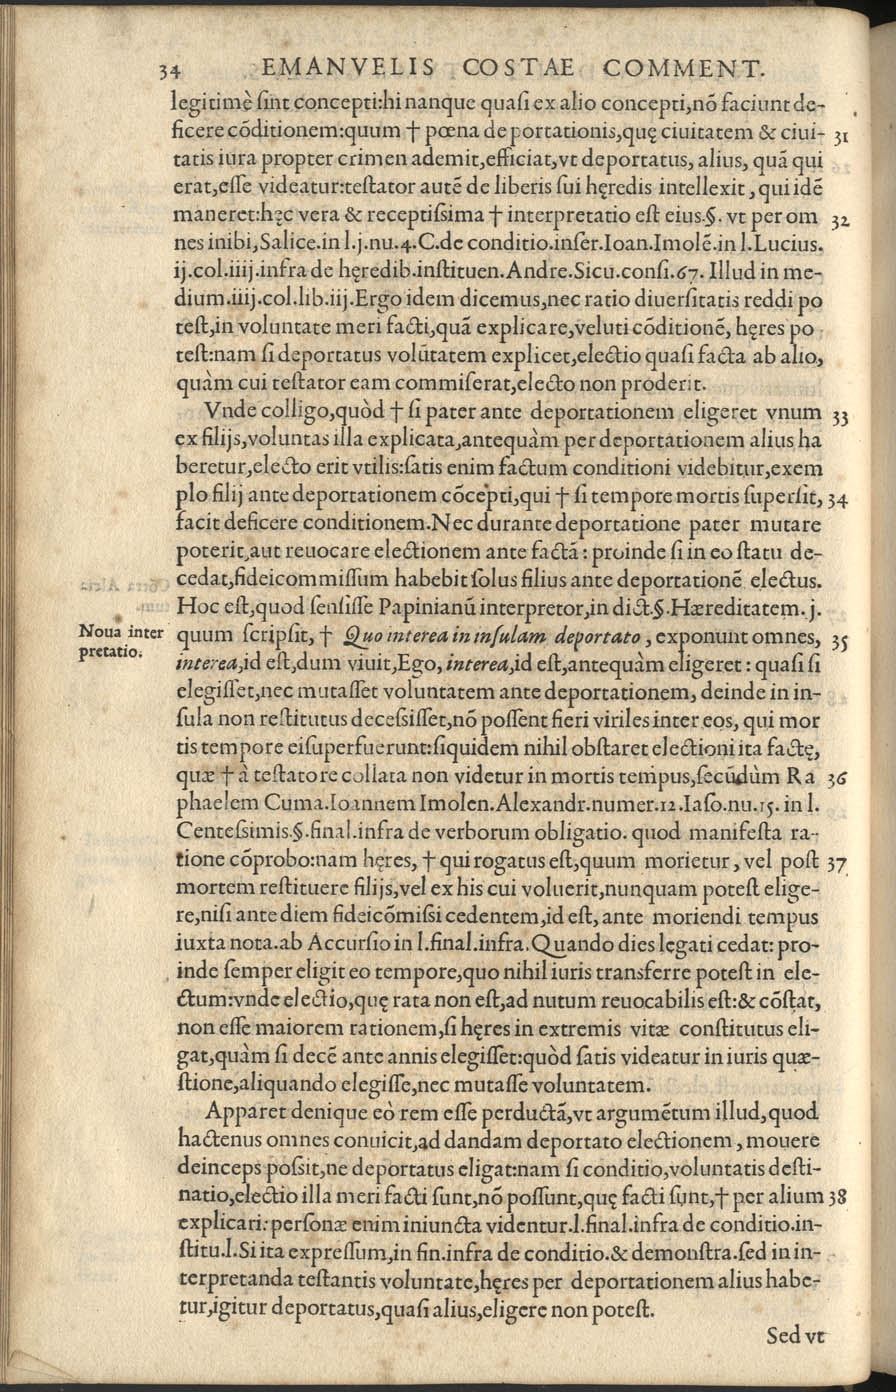 34 EMANVELIS COSTAE COMMENT.
legitimè ſint concepti:hi nanque quaſi ex alio concepti,nõ faciunt de-
ficere cõditionem:quum † pœna deportationis,quę ciuitatem & ciui- 31
tatis iura propter crimen ademit,efficiat,vt deportatus, alius, quã qui
erat,eſſe videatur:teſtator autẽ de liberis ſui hęredis intellexit, qui idẽ
maneret:hęc vera & receptiſsima † interpretatio eſt eius.§. vt per om 32
nes inibi,Salice.in l.j.nu.4.C.de conditio.inſer.Ioan.Imolẽ.in l.Lucius.
ij.col.iiij.infra de hęredib.inſtituen.Andre.Sicu.conſi.67. Illud in me-
dium.iij.col.lib.iij.Ergo idem dicemus,nec ratio diuerſitatis reddi po
teſt,in voluntate meri facti,quã explicare,veluti cõditionẽ, hęres po
teſt:nam ſi deportatus volũtatem explicet,electio quaſi facta ab alio,
quàm cui teſtator eam commiſerat,electo non proderit.
Vnde colligo,quòd † ſi pater ante deportationem eligeret vnum 33
ex filijs,voluntas illa explicata,antequàm per deportationem alius ha
beretur,electo erit vtilis:ſatis enim factum conditioni videbitur,exem
plo filij ante deportationem cõcepti,qui † ſi tempore mortis ſuperſit, 34
facit deficere conditionem.Nec durante deportatione pater mutare
poterit,aut reuocare electionem ante factã: proinde ſi in eo ſtatu de-
cedat,fideicommiſſum habebit ſolus filius ante deportationẽ electus.
Hoc eſt,quod ſenſiſſe Papinianũ interpretor,in dict.§.Hæreditatem. j.
Noua inter
pretatio.
quum ſcripſit, † Quo interea in inſulam deportato, exponunt omnes, 35
interea,id eſt,dum viuit,Ego, interea,id eſt,antequàm eligeret: quaſi ſi
elegiſſet,nec mutaſſet voluntatem ante deportationem, deinde in in-
ſula non reſtitutus deceſsiſſet,nõ poſſent fieri viriles inter eos, qui mor
tis tempore ei ſuperfuerunt:ſiquidem nihil obſtaret electioni ita factę,
quæ † à teſtatore collata non videtur in mortis tempus,ſecũdùm Ra 36
phaelem Cuma.Ioannem Imolen.Alexandr.numer.12.Iaſo.nu.15. in l.
Centeſsimis.§.final.infra de verborum obligatio. quod manifeſta ra-
tione cõprobo:nam hęres, † qui rogatus eſt,quum morietur, vel poſt 37
mortem reſtituere filijs,vel ex his cui voluerit,nunquam poteſt elige-
re,niſi ante diem fideicõmiſsi cedentem,id eſt, ante moriendi tempus
iuxta nota.ab Accurſio in l.final.infra.Quando dies legati cedat: pro-
inde ſemper eligit eo tempore,quo nihil iuris transferre poteſt in ele-
ctum:vnde electio,quę rata non eſt,ad nutum reuocabilis eſt:& cõſtat,
non eſſe maiorem rationem,ſi hęres in extremis vitæ conſtitutus eli-
gat,quàm ſi decẽ ante annis elegiſſet:quòd ſatis videatur in iuris quæ-
ſtione,aliquando elegiſſe,nec mutaſſe voluntatem.
Apparet denique eò rem eſſe perductã,vt argumẽtum illud,quod
hactenus omnes conuicit,ad dandam deportato electionem, mouere
deinceps poſsit,ne deportatus eligat:nam ſi conditio,voluntatis deſti-
natio,electio illa meri facti ſunt,nõ poſſunt,quę facti ſunt,† per alium 38
explicari: perſonæ enim iniuncta videntur.l.final.infra de conditio.in-
ſtitu.l.Si ita expreſſum,in fin.infra de conditio.& demonſtra.ſed in in-
terpretanda teſtantis voluntate,hęres per deportationem alius habe-
tur,igitur deportatus,quaſi alius,eligere non poteſt.
Sed vt